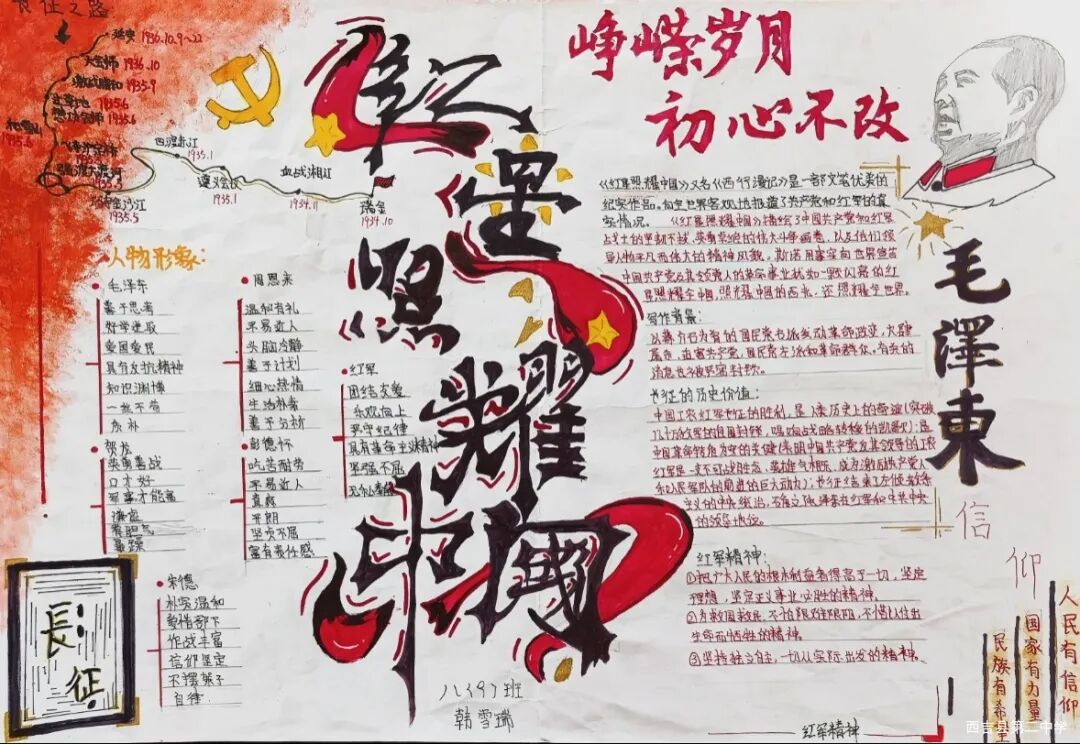 长征之路
延安 1936.10.9~22
大会师 1936.10
激战腊子口 1935.9
1935.6
1935.6
1935.5
强渡大渡河
1935.5
金沙江
1935.5
四渡赤江
1935.1
遵义会议
1935.1
血战湘江
1934.11
瑞金
1934.10
红星照耀中国
峥嵘岁月
初心不改
人物形象:
毛泽东
善于思考
好学进取
爱国爱民
具有反抗精神
知识渊博
一丝不苟
质朴
贺龙
英勇善战
口才好
军事才能高
谦虚
有胆气
暴躁
周恩来
温和有礼
平易近人
头脑冷静
善于计划
细心热情
生活朴素
善于分析
彭德怀
吃苦耐劳
平易近人
真爽
开朗
坚贞不屈
富有责任感
红军
团结友爱
乐观向上
严守纪律
具有革命主义精神
坚强不屈
朱德
朴实温和
爱惜部下
作战丰富
信仰坚定
不摆架子
自律
長征
八(9)班
韩雪瑞
《红星照耀中国》又名《西行漫记》是一部文笔优美的
纪实作品。向全世界客观地报道了共产党和红军的真
实情况。《红星照耀中国》描绘了中国共产党和红军
战士的坚韧不拔、英勇卓绝的伟大斗争画卷,以及他们领
导人物平凡而伟大的精神风貌,斯诺用事实向世界宣告
中国共产党及其领导人的革命事业犹如一颗闪亮的红
星照耀全中国,照耀中国的西北,还照耀全世界。
写作背景:
以蒋介石为首的国民党右派发动革命政变,大肆
屠杀、迫害共产党、国民党左派和革命群众。有关的
消息也多被严密封锁。
长征的历史价值:
中国工农红军长征的胜利,是人类历史上的奇迹(突破
几十万敌军的围追封锁,唱响战略转移的凯歌);是
中国革命转危为安的关键(表明中国共产党及其领导的工农
红军是一支不可战胜的力量,英雄气概,成为激励共产党人
和人民军队的前进的巨大动力);长征结束了左倾教条
主义的中央统治,确立了毛泽东在红军和中共中央
的领导地位。
红军精神:
①把广大人民的根本利益看得高于一切,坚定
理想,坚定正义事业必胜的精神。
②为救国救民,不怕艰难险阻,不惜以付出
生命而牺牲的精神。
③坚持独立自主,一切从实际出发的精神。
红军精神
毛澤東
信
仰
人民有信仰
国家有力量
民族有希望
西吉县第二中学